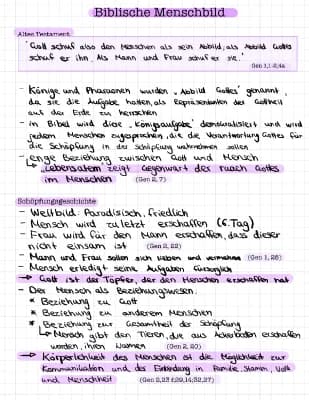 Biblische Menschbild
Altes Testament
"Gott schuf also den Menschen als sein Abbild; als Abbild Gottes
schuf er ihn. Als Mann und Frau schuf er sie."
Gen 1,1-2,4a
- Könige und Pharaonen wurden "Abbild Gottes" genannt,
da sie die Aufgabe hatten, als Repräsentanten der Gottheit
auf der Erde zu herrschen
- in Bibel wird diese "Königsaufgabe" demokratisiert und wird
jedem Menschen zugesprochen, die die Verantwortung Gottes für
die Schöpfung in der Schöpfung wahrnehmen sollen
- enge Beziehung zwischen Gott und Mensch
→ Lebensatem zeigt Gegenwart des ruach Gottes
im Menschen (Gen 2,7)
Schöpfungsgeschichte
- Weltbild: Paradisisch, friedlich
- Mensch wird zuletzt erschaffen (6.Tag)
- Frau wird für den Mann erschaffen, dass dieser
nicht einsam ist (Gen 2,22)
- Mann und Frau sollen sich lieben und vermehren (Gen 1,28)
- Mensch erledigt seine Aufgaben fürsorglich
→ Gott ist der Töpfer, der den Menschen erschaffen hat
- Der Mensch als Beziehungswesen:
* Beziehung zu Gott
* Beziehung zu anderem Menschen
* Beziehung zur Gesamtheit der Schöpfung
↳ Mensch gibt den Tieren, die aus Ackerboden erschaffen
worden, ihren Namen (Gen 2,20)
→ Körperlichkeit des Menschen ist die Möglichkeit zur
Kommunikation und der Einbindung in Familie, Stamm, Volk
und Menschheit (Gen 2,23 f;29,14;32,27)